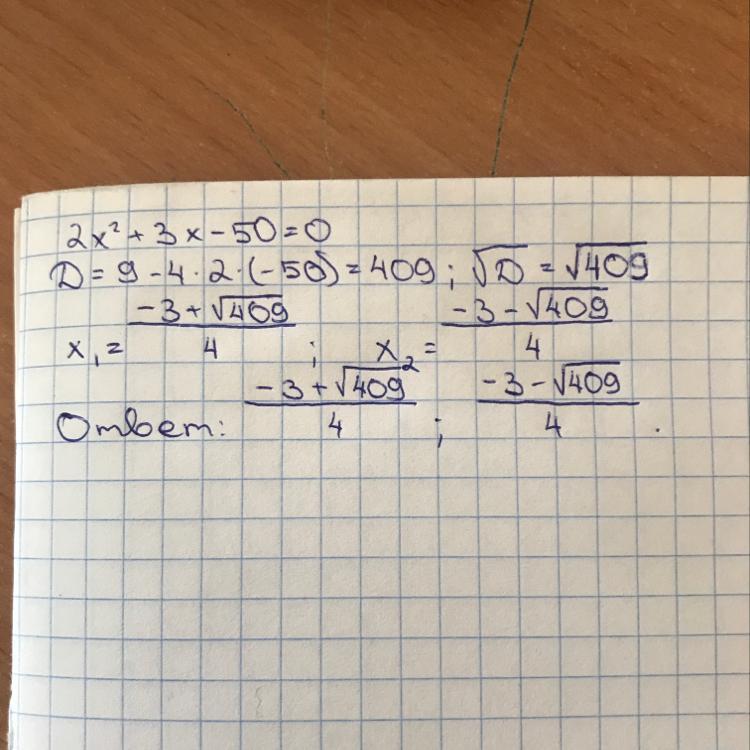 2x² + 3x - 50 = 0
D = 9 - 4 · 2 · (-50) = 409 ; √D = √409
x₁ = (-3 + √409)/4 ; x₂ = (-3 - √409)/4
Ответ: (-3 + √409)/4 ; (-3 - √409)/4 .